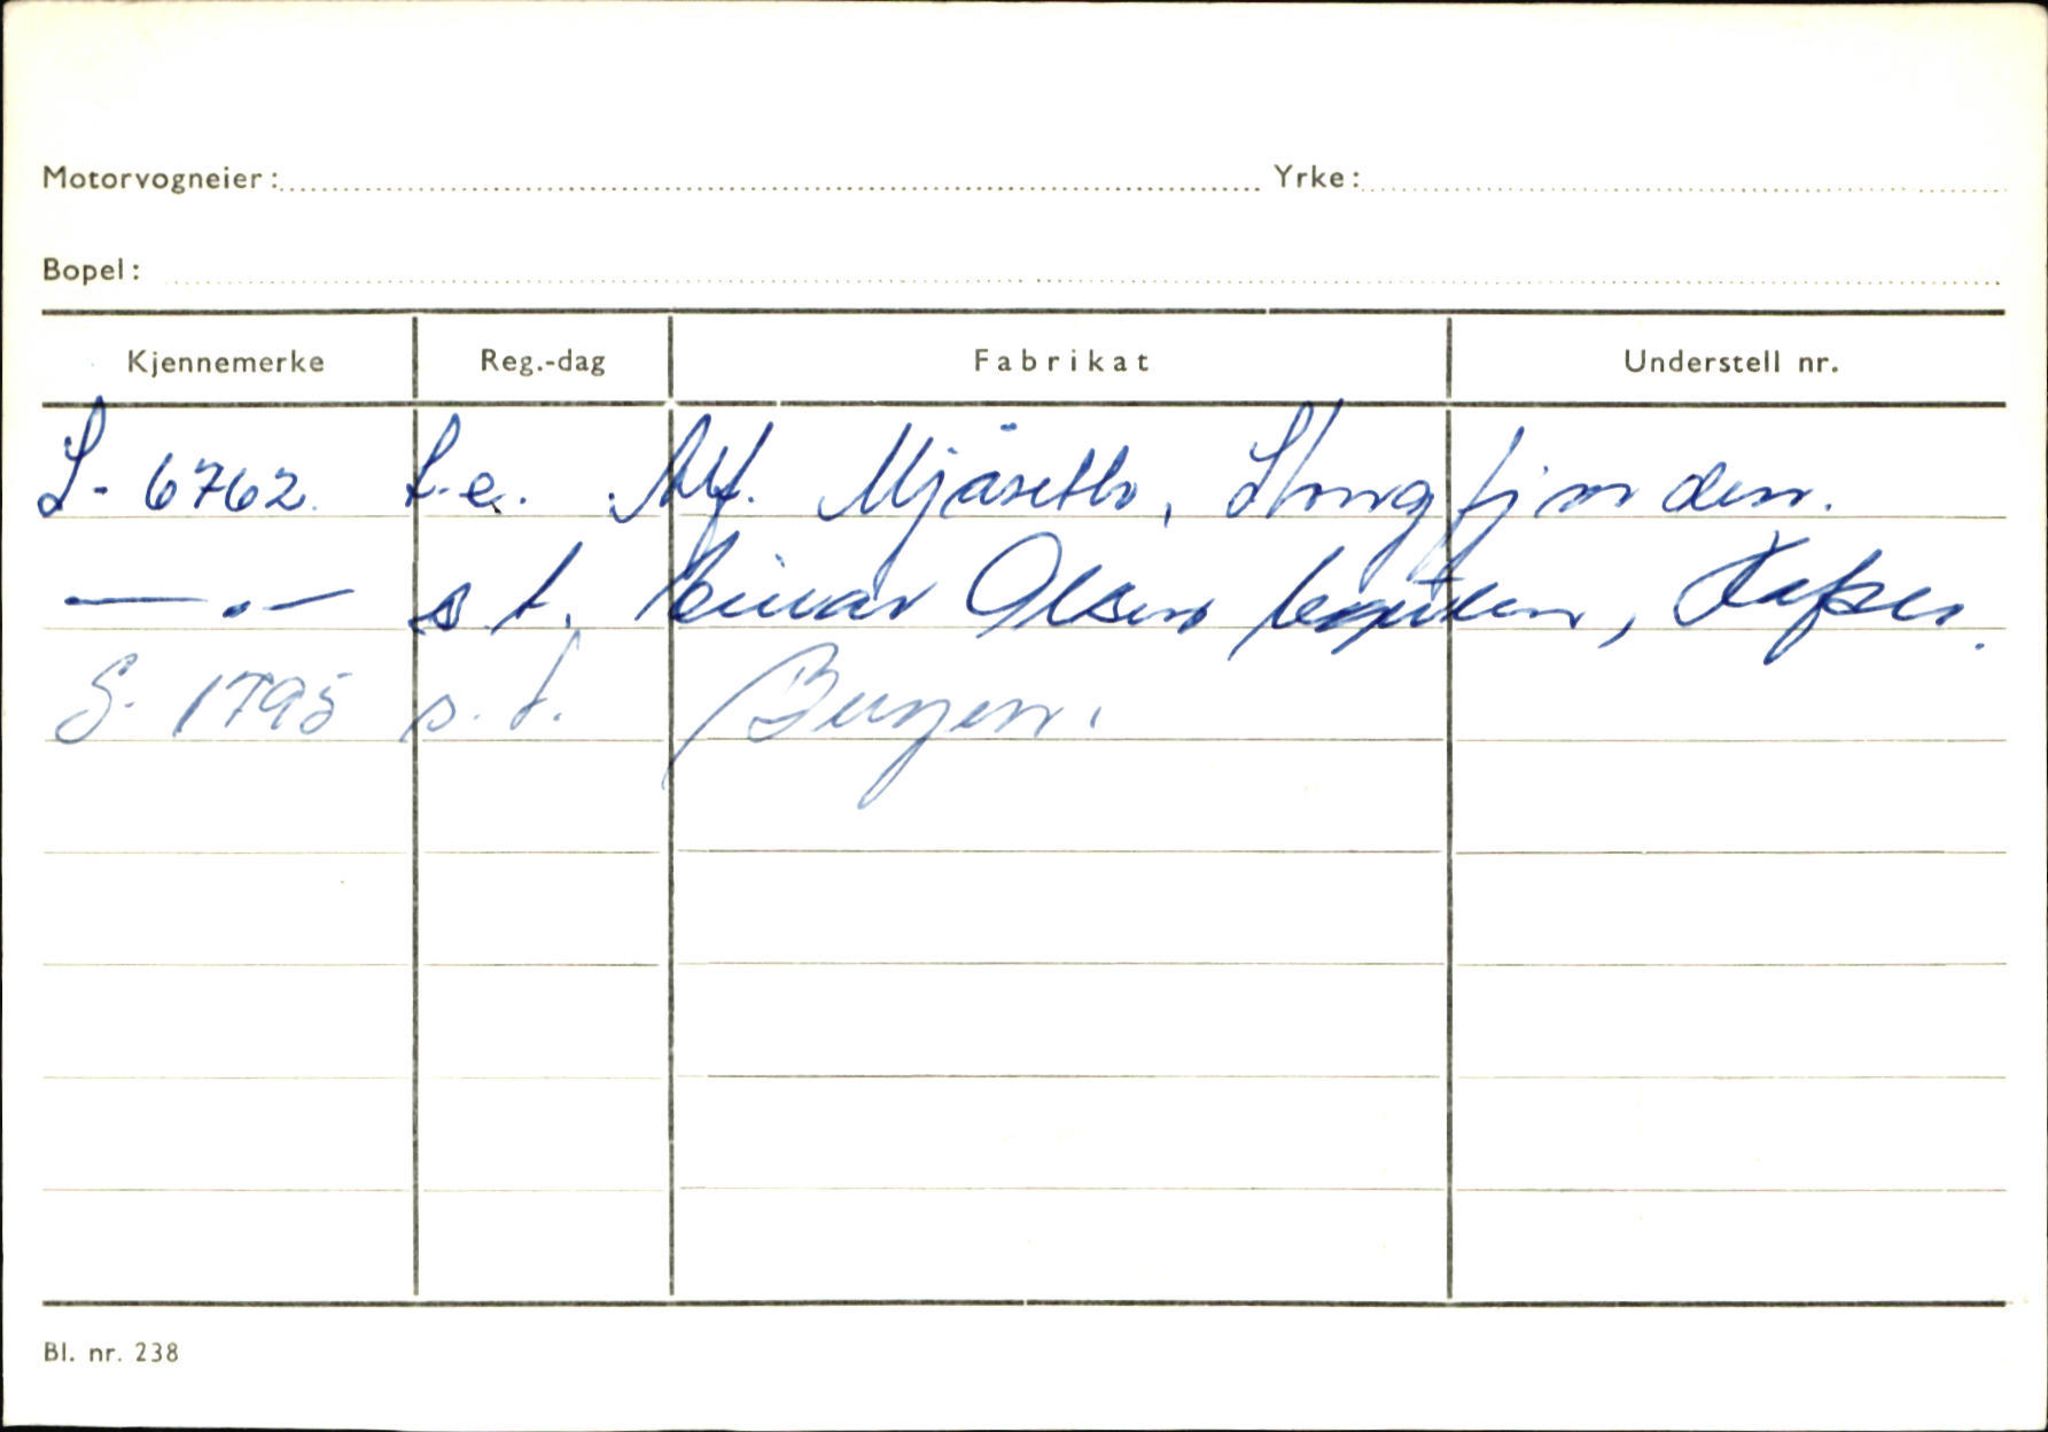 Motorvogneier: Yrke:
Bopel:
Kjennemerke Reg.-dag Fabrikat Understell nr.
S- 6762. t.e. Alf. Mjåseth, Stongfjorden.
— . — s.t. Einar Olsen
S- 1795 s.t. Bergen.
Bl. nr. 238